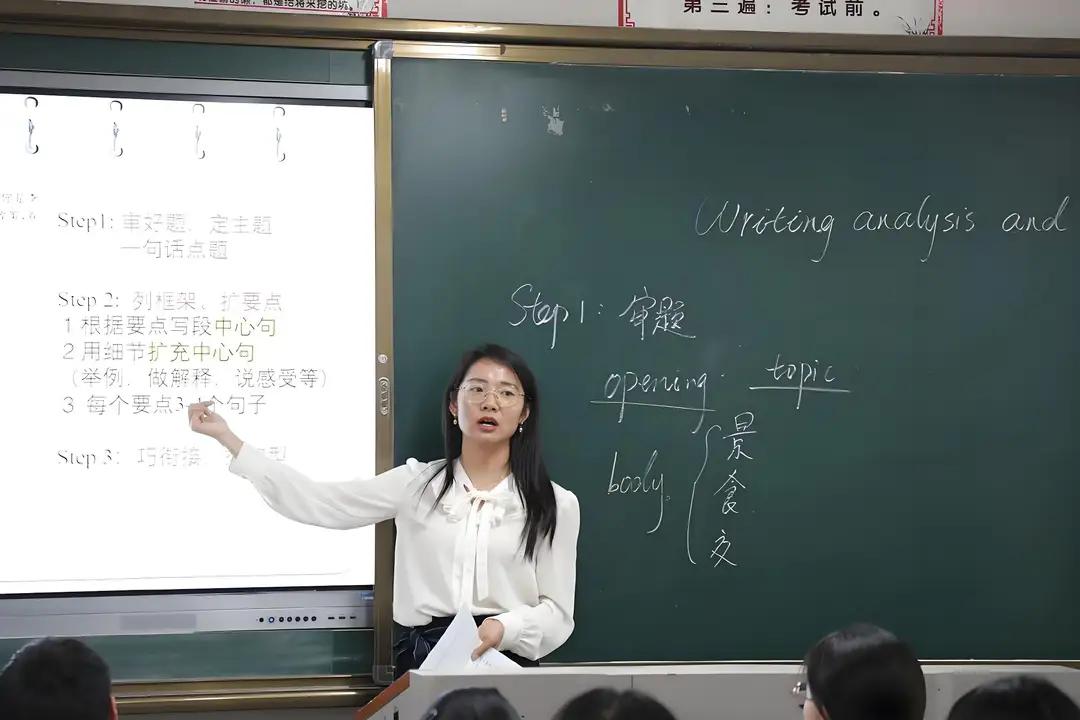 都是给将来挖的坑。
第三遍：考试前。
Step1: 审好题、定主题
一句话点题
Step 2: 列框架、扩要点
1 根据要点写段中心句
2 用细节扩充中心句
（举例、做解释、说感受等）
3 每个要点3-4个句子
Step 3: 巧衔接
Writing analysis and
Step 1: 审题
opening. topic
body
景
食
交